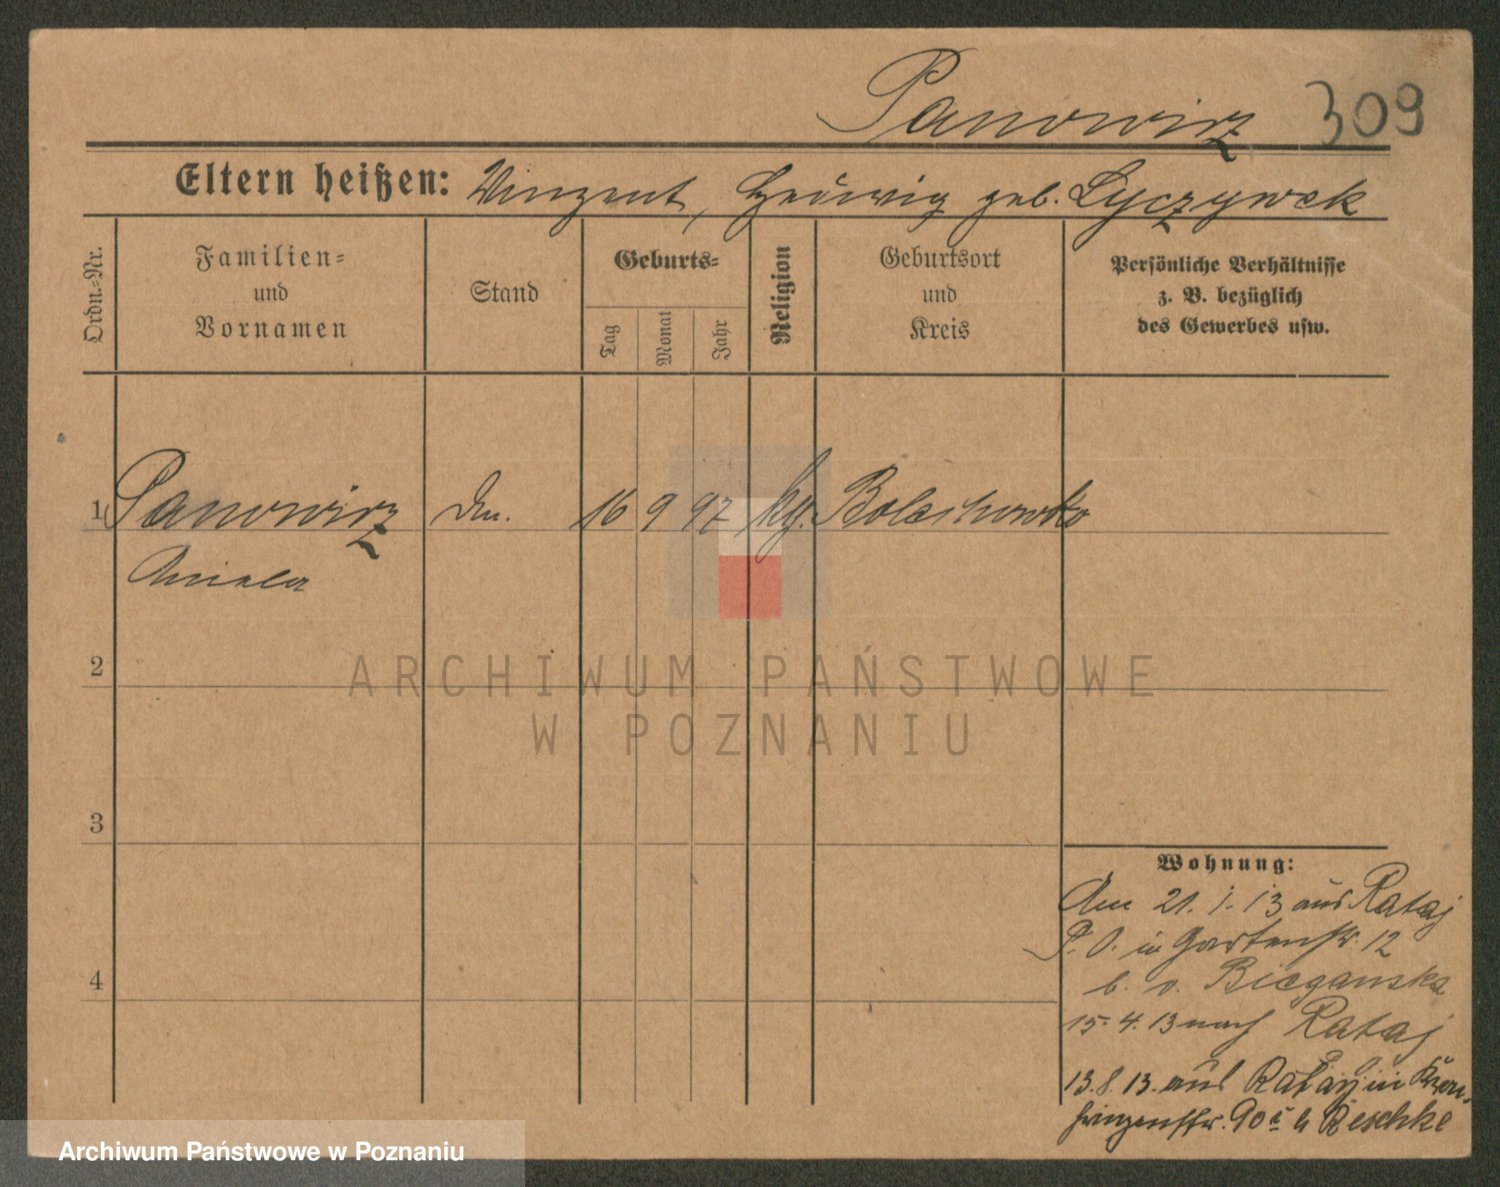 Panowicz 309
Eltern heißen: Vinzent, Hedwig geb. Lyczywek
Ordn.-Nr.
Familien-
und
Vornamen
Stand
Geburts-
Tag
Monat
Jahr
Religion
Geburtsort
und
Kreis
Persönliche Verhältnisse
z. B. bezüglich
des Gewerbes usw.
1 Panowicz 16 9 97 kg. Bolechowko
Aniela
2
ARCHIWUM PAŃSTWOWE
W POZNANIU
3
Wohnung:
Am 21. 1. 13 aus Rataj
P. O. in Gartenstr. 12
4
b. v. Bieganska
15. 4. 13 nach Rataj
13. 8. 13. aus Rataj in Kron-
prinzenstr. 90 b Reschke
Archiwum Państwowe w Poznaniu